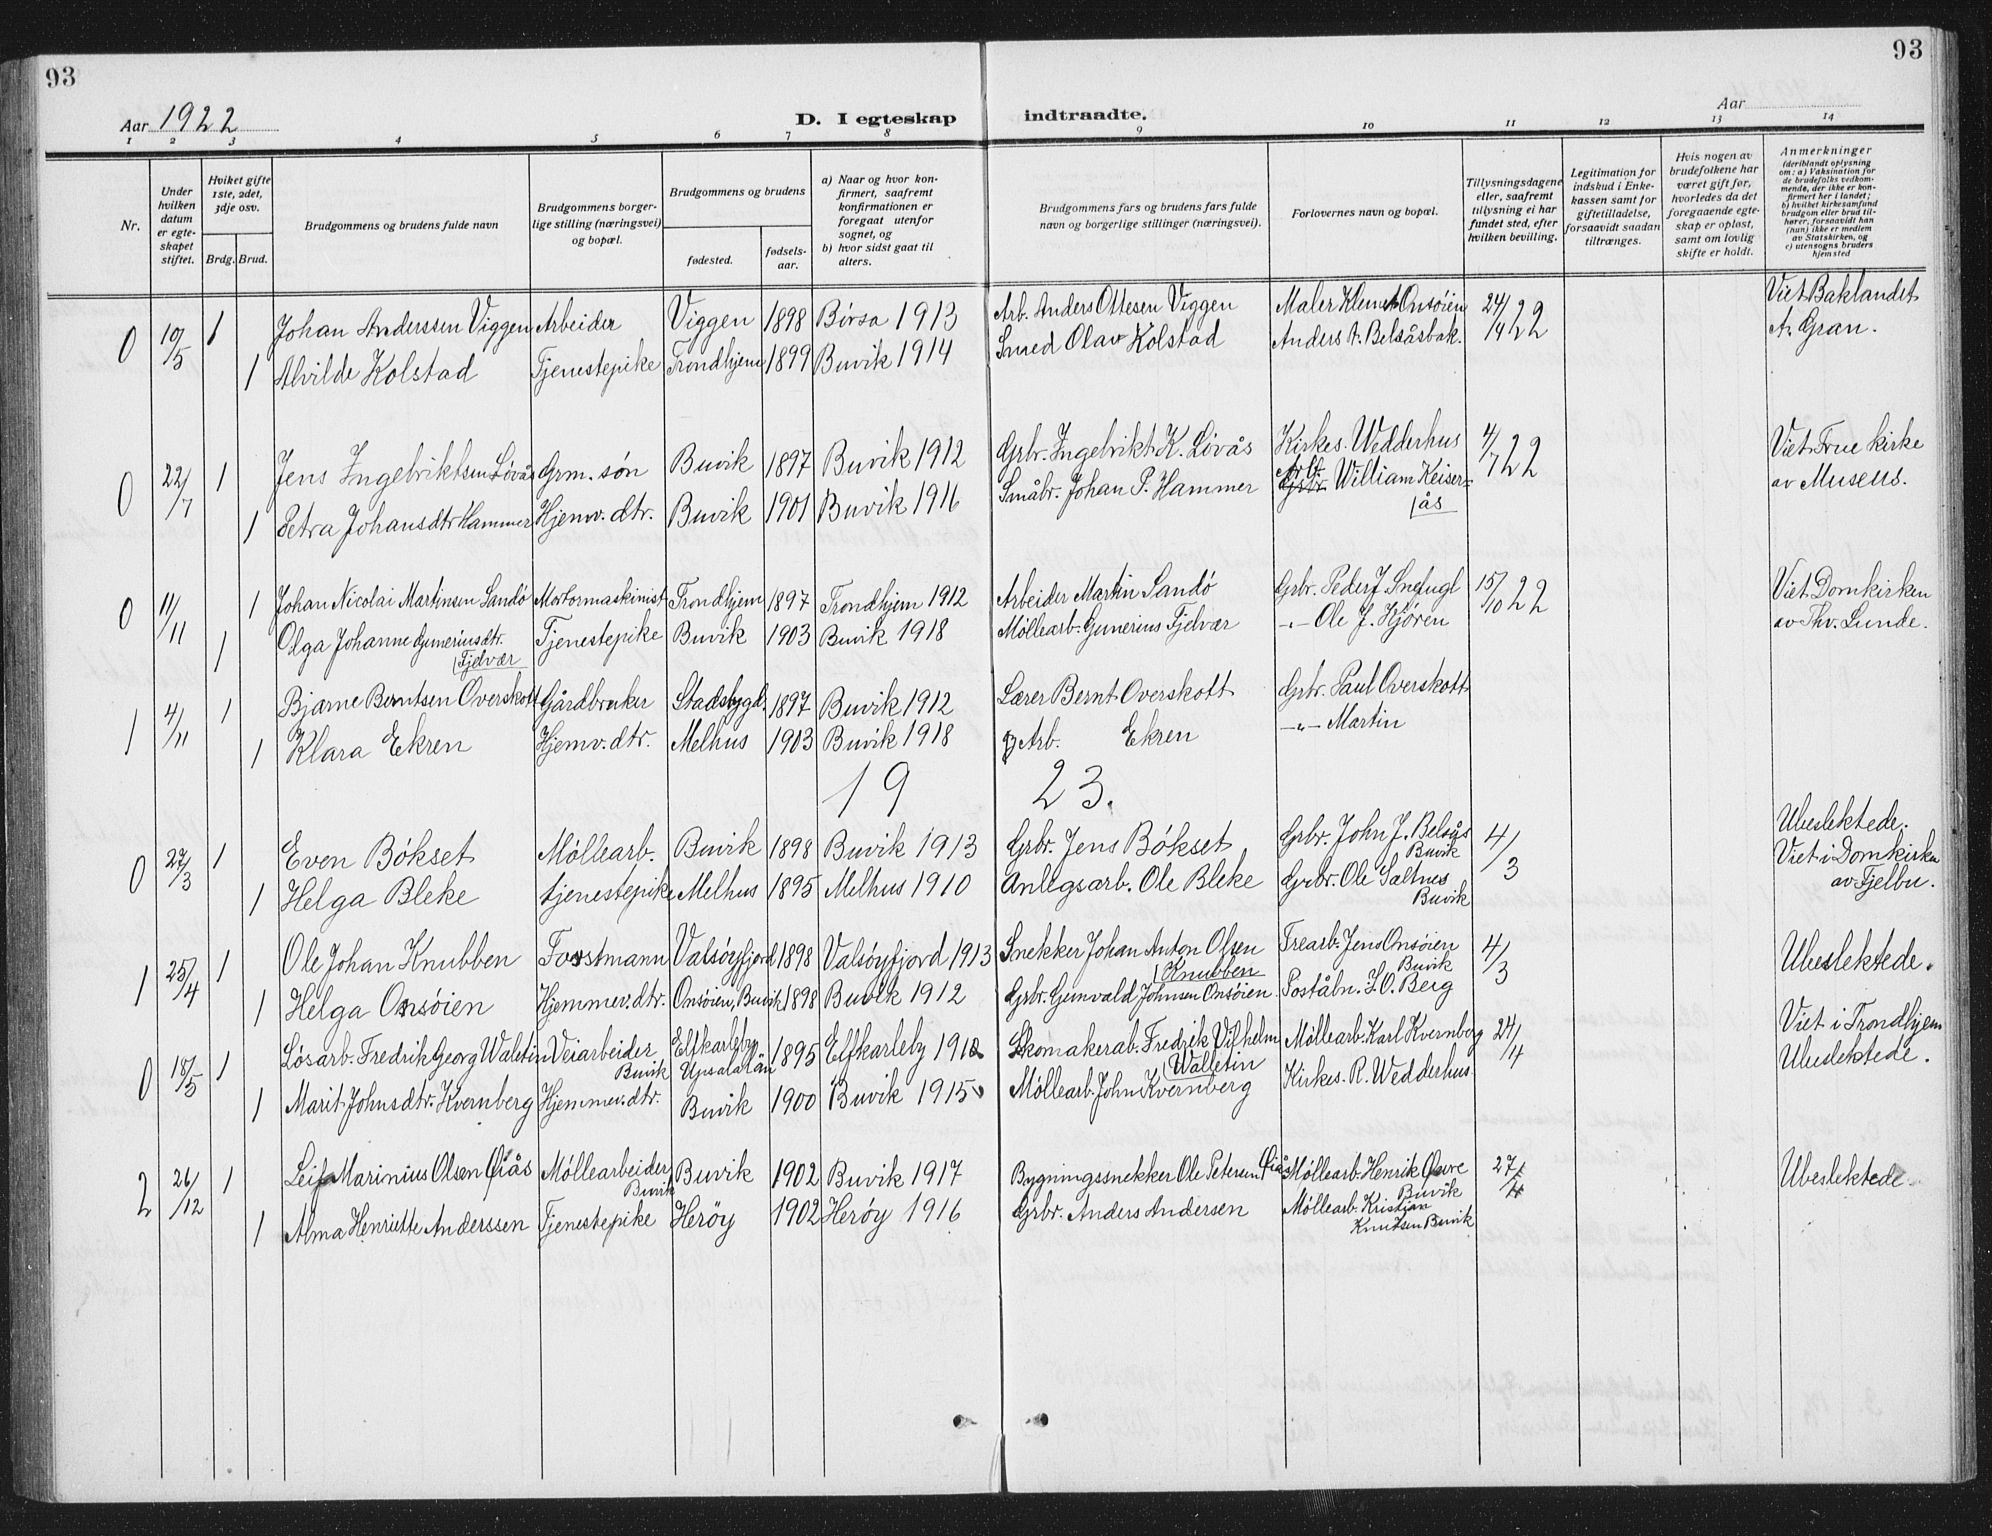 93
93
Aar 1922
D. I egteskap indtraadte.
Aar
1 2 3 4 5 6 7 8 9 10 11 12 13 14
Nr.
Under hvilken datum er egteskapet stiftet.
Hviket gifte 1ste, 2det, 3dje osv.
Brdg. Brud.
Brudgommens og brudens fulde navn
Brudgommens borgerlige stilling (næringsvei) og bopæl.
Brudgommens og brudens
fødested.
fødselsaar.
a) Naar og hvor konfirmert, saafremt konfirmationen er foregaat utenfor sognet, og
b) hvor sidst gaat til alters.
Brudgommens fars og brudens fars fulde navn og borgerlige stillinger (næringsvei).
Forlovernes navn og bopæl.
Tillysningsdagene eller, saafremt tillysning ei har fundet sted, efter hvilken bevilling.
Legitimation for indskud i Enkekassen samt for giftetilladelse, forsaavidt saadan tiltrænges.
Hvis nogen av brudefolkene har været gift før, hvorledes da det foregaaende egteskap er opløst, samt om lovlig skifte er holdt.
Anmerkninger
(deriblandt oplysning om: a) Vaksination for de brudefolks vedkommende, der ikke er konfirmert her i landet;
b) hvilket kirkesamfund brudgom eller brud tilhører, forsaavidt han (hun) ikke er medlem av Statskirken, og
c) utensogns bruders hjemsted
0 10/5 1 Johan Anderssen Viggen Arbeider Viggen 1898 Børsa 1913 Arb. Anders Ottesen Viggen Maler Klemet Onsøien 24/4 22 Viet Baklandet
1 Alvilde Kolstad Tjenestepike Trondhjem 1899 Buvik 1914 Smed Olav Kolstad Anders A. Belsåsbak. Av Gran.
0 22/7 1 Jens Ingebriktsen Løvås Grm. søn Buvik 1897 Buvik 1912 Grbr. Ingebrikt K. Løvås Kirkes. Wedderhus 4/7 22 Viet Frue kirke
1 Petra Johansdtr Hammer Hjemv. dtr. Buvik 1901 Buvik 1916 Småbr. Johan P. Hammer Arb. William Keiserås av Museus.
0 11/11 1 Johan Nicolai Martinsen Sandø Mortormaskinist Trondhjem 1897 Trondhjem 1912 Arbeider Martin Sandø Grbr. Peder J Snefugl 15/10 22 Viet Domkirken
1 Olga Johanne Gunneriusdtr. Fjelvær Tjenestepike Buvik 1903 Buvik 1918 Møllearb. Gunerius Fjelvær -"- Ole J. Hjøren av Thv. Lunde.
1 4/11 1 Bjarne Berntsen Overskott Gårdbruker Stadsbygd. 1897 Buvik 1912 Lærer Bernt Overskott Grbr. Paul Overskott
1 Klara Ekren Hjemv. dtr. Melhus 1903 Buvik 1918 Arb. Ekren -"- Martin
19 23.
0 27/3 1 Even Bøkset Møllearb. Buvik 1898 Buvik 1913 Grbr. Jens Bøkset Grbr. John J. Belsås Buvik 4/3 Ubeslektede. Viet i Domkirken
1 Helga Bleke tjenestepike Melhus 1895 Melhus 1910 Anlegsarb. Ole Bleke Grbr. Ole Saltnes Buvik av Fjelbu.
1 25/4 1 Ole Johan Knubben Forstmann Valsøyfjord 1898 Valsøyfjord 1913 Snekker Johan Anton Olsen Knubben Trearb. Jens Onsøien Buvik 4/3 Ubeslektede.
1 Helga Onsøien Hjemmev. dtr. Onsøien, Buvik 1898 Buvik 1912 Grbr. Gunvald Johnsen Onsøien Poståbn. J. O. Berg
0 18/5 1 Løsarb. Fredrik Georg Waletin Veiarbeider Buvik Elfkarleby Upsala Län 1895 Elfkarleby 1912 Skomakerab. Fredrik Vilhelm Walletin Møllearb. Karl Kvernberg 24/4 Viet i Trondhjem Ubeslektede.
1 Marit Johnsdtr. Kvernberg Hjemmev. dtr. Buvik 1900 Buvik 1915 Møllearb. John Kvernberg Kirkes. R. Wedderhus
2 26/12 1 Leif Marinius Olsen Øiås Møllearbeider Buvik Buvik 1902 Buvik 1917 Bygningssnekker Ole Petersen Øiås Møllearb. Henrik Owe Buvik 27/ Ubeslektede
1 Alma Henriette Anderssen Tjenestepike Herøy 1902 Herøy 1916 Grbr. Anders Andersen Møllearb. Kristian Knutsen Buvik